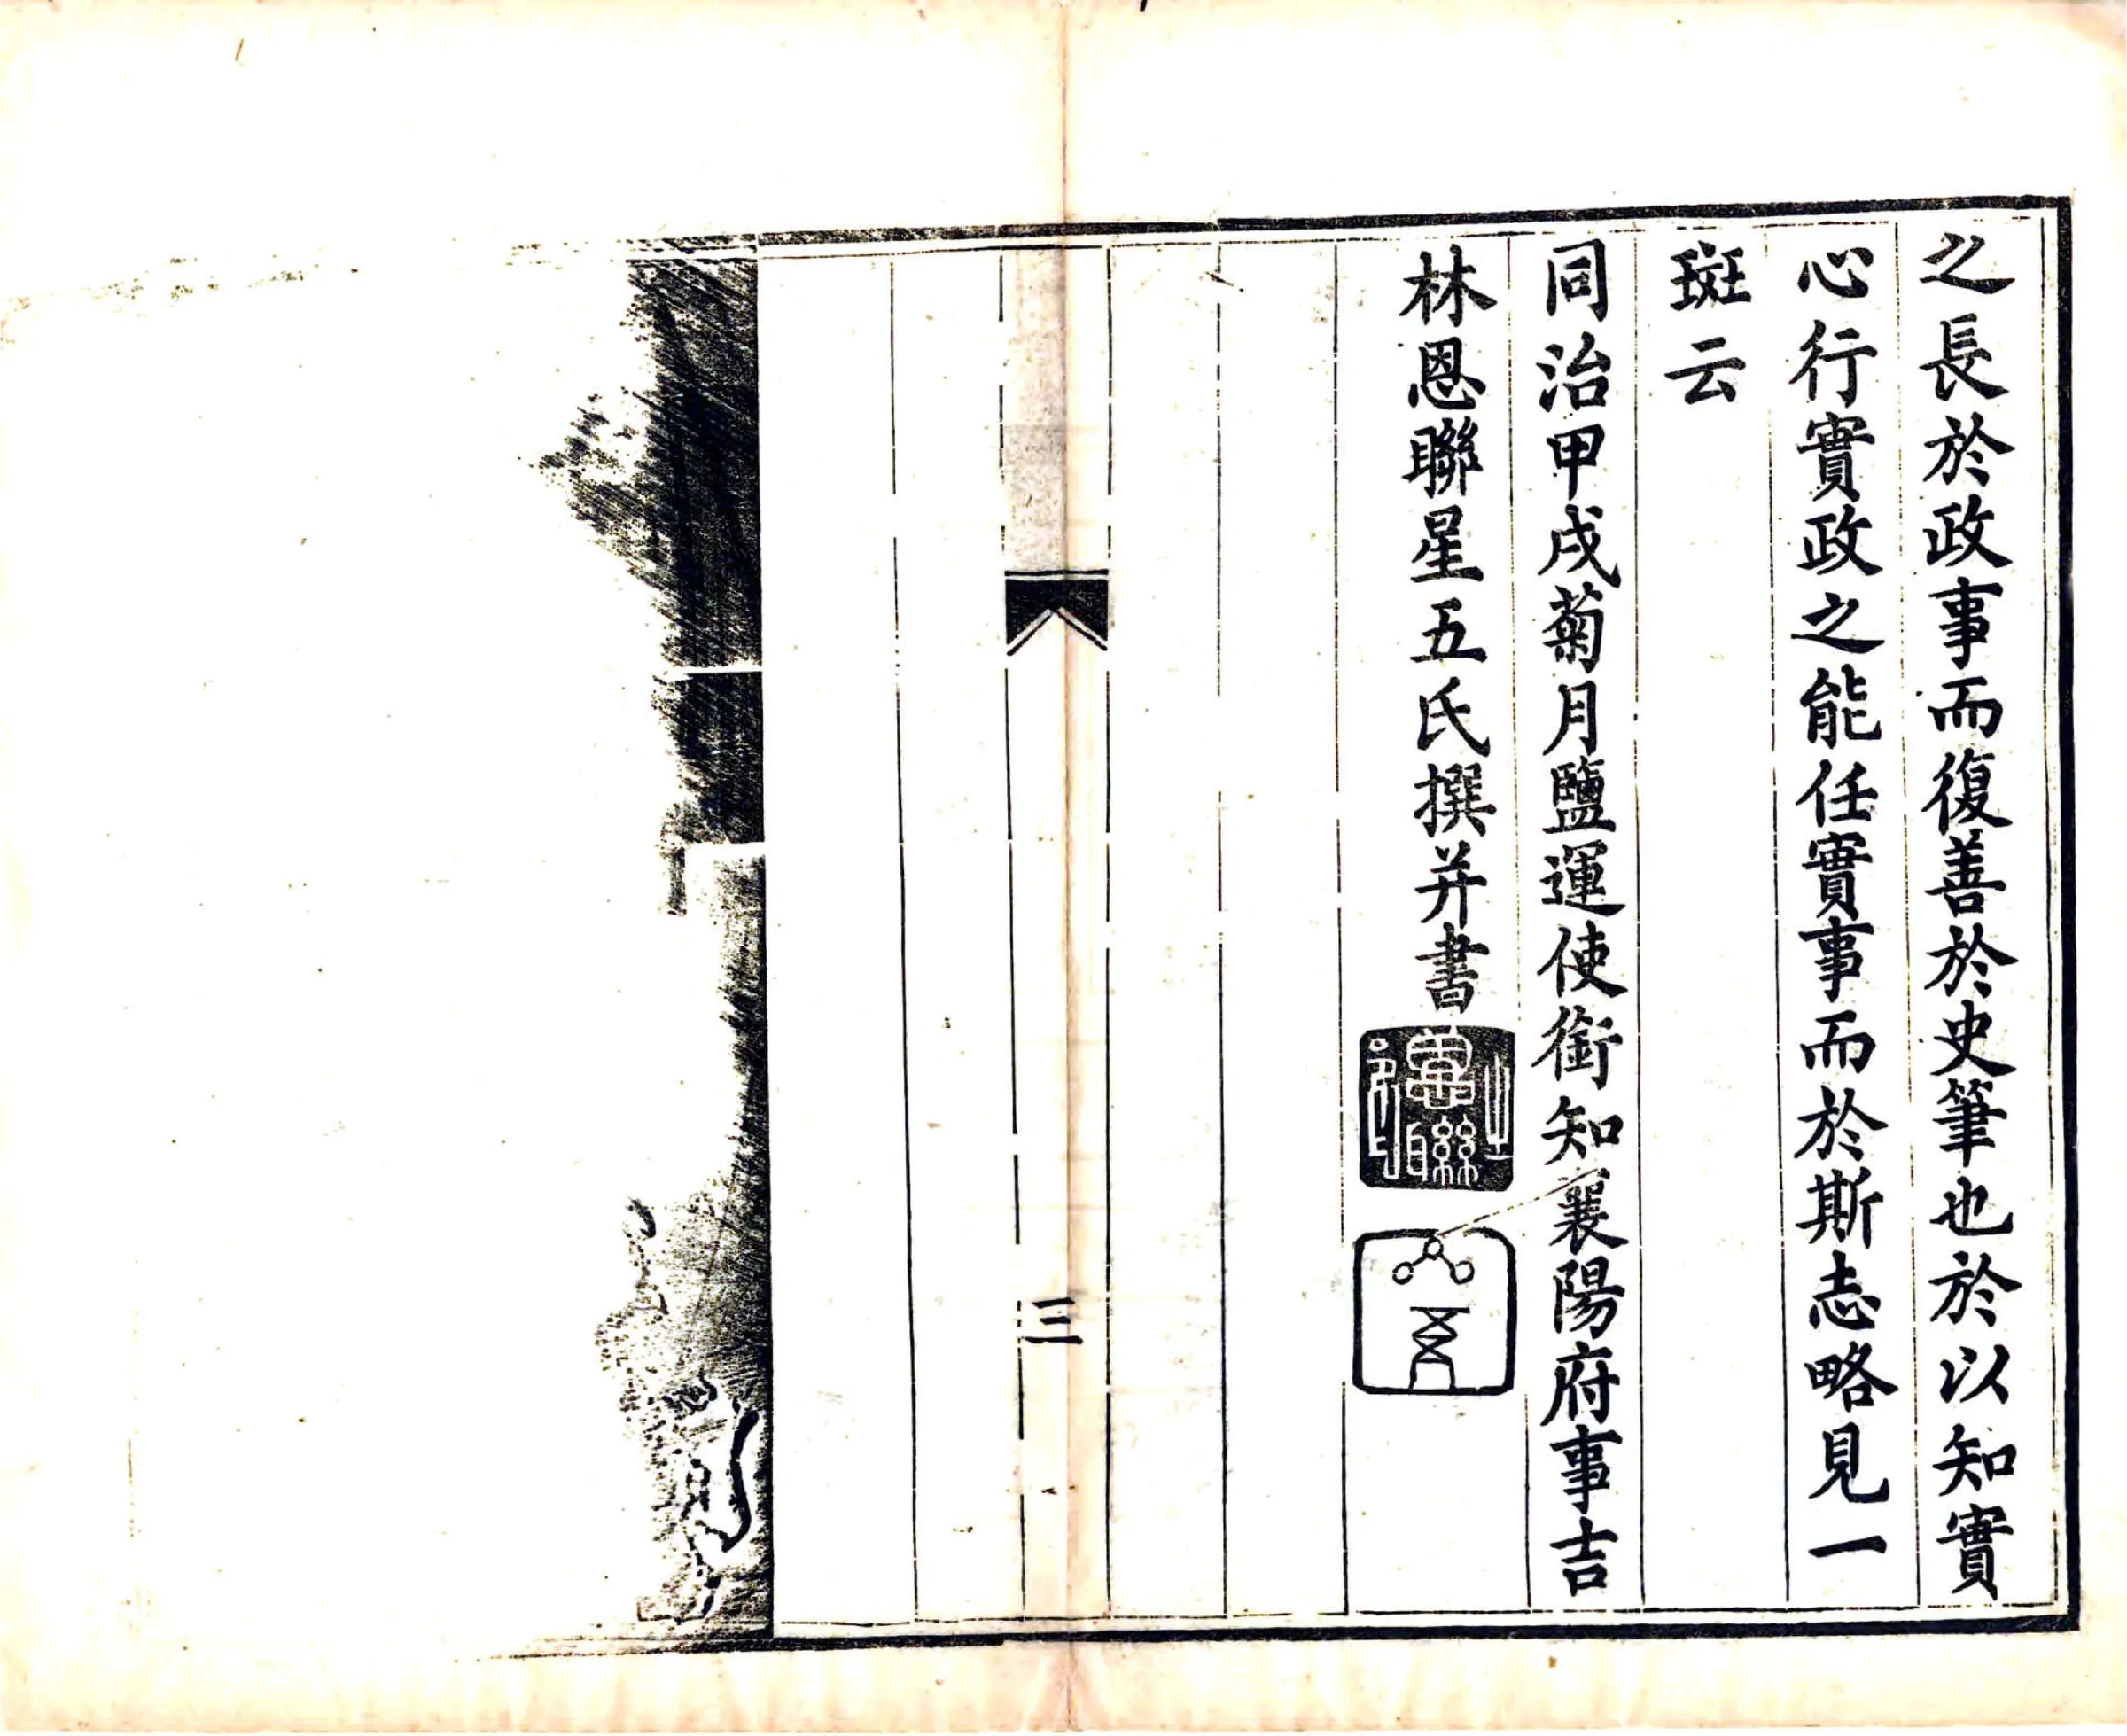 之長於政事而復善於史筆也於以知實
心行實政之能任實事而於斯志略見一
斑云
同治甲戌菊月鹽運使銜知襄陽府事吉
林恩聯星五氏撰并書
恩聯之印
星五
三